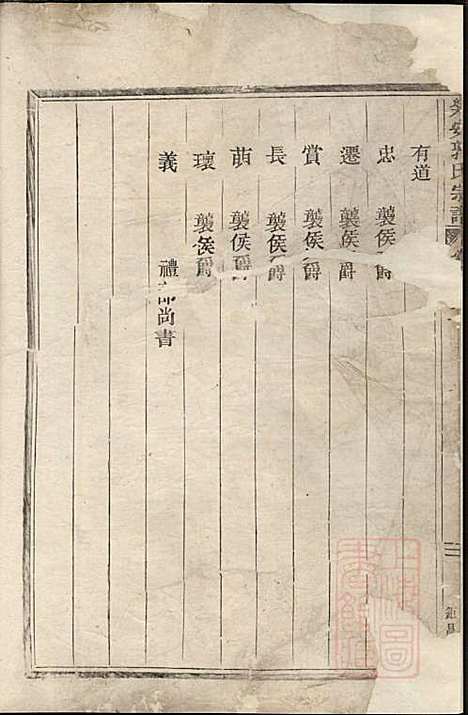 郭氏宗譜
有道
忠 襲侯爵
遷 襲侯爵
賞 襲侯爵
長 襲侯爵
萌 襲侯爵
瓌 襲侯爵
義 禮部尚書
二